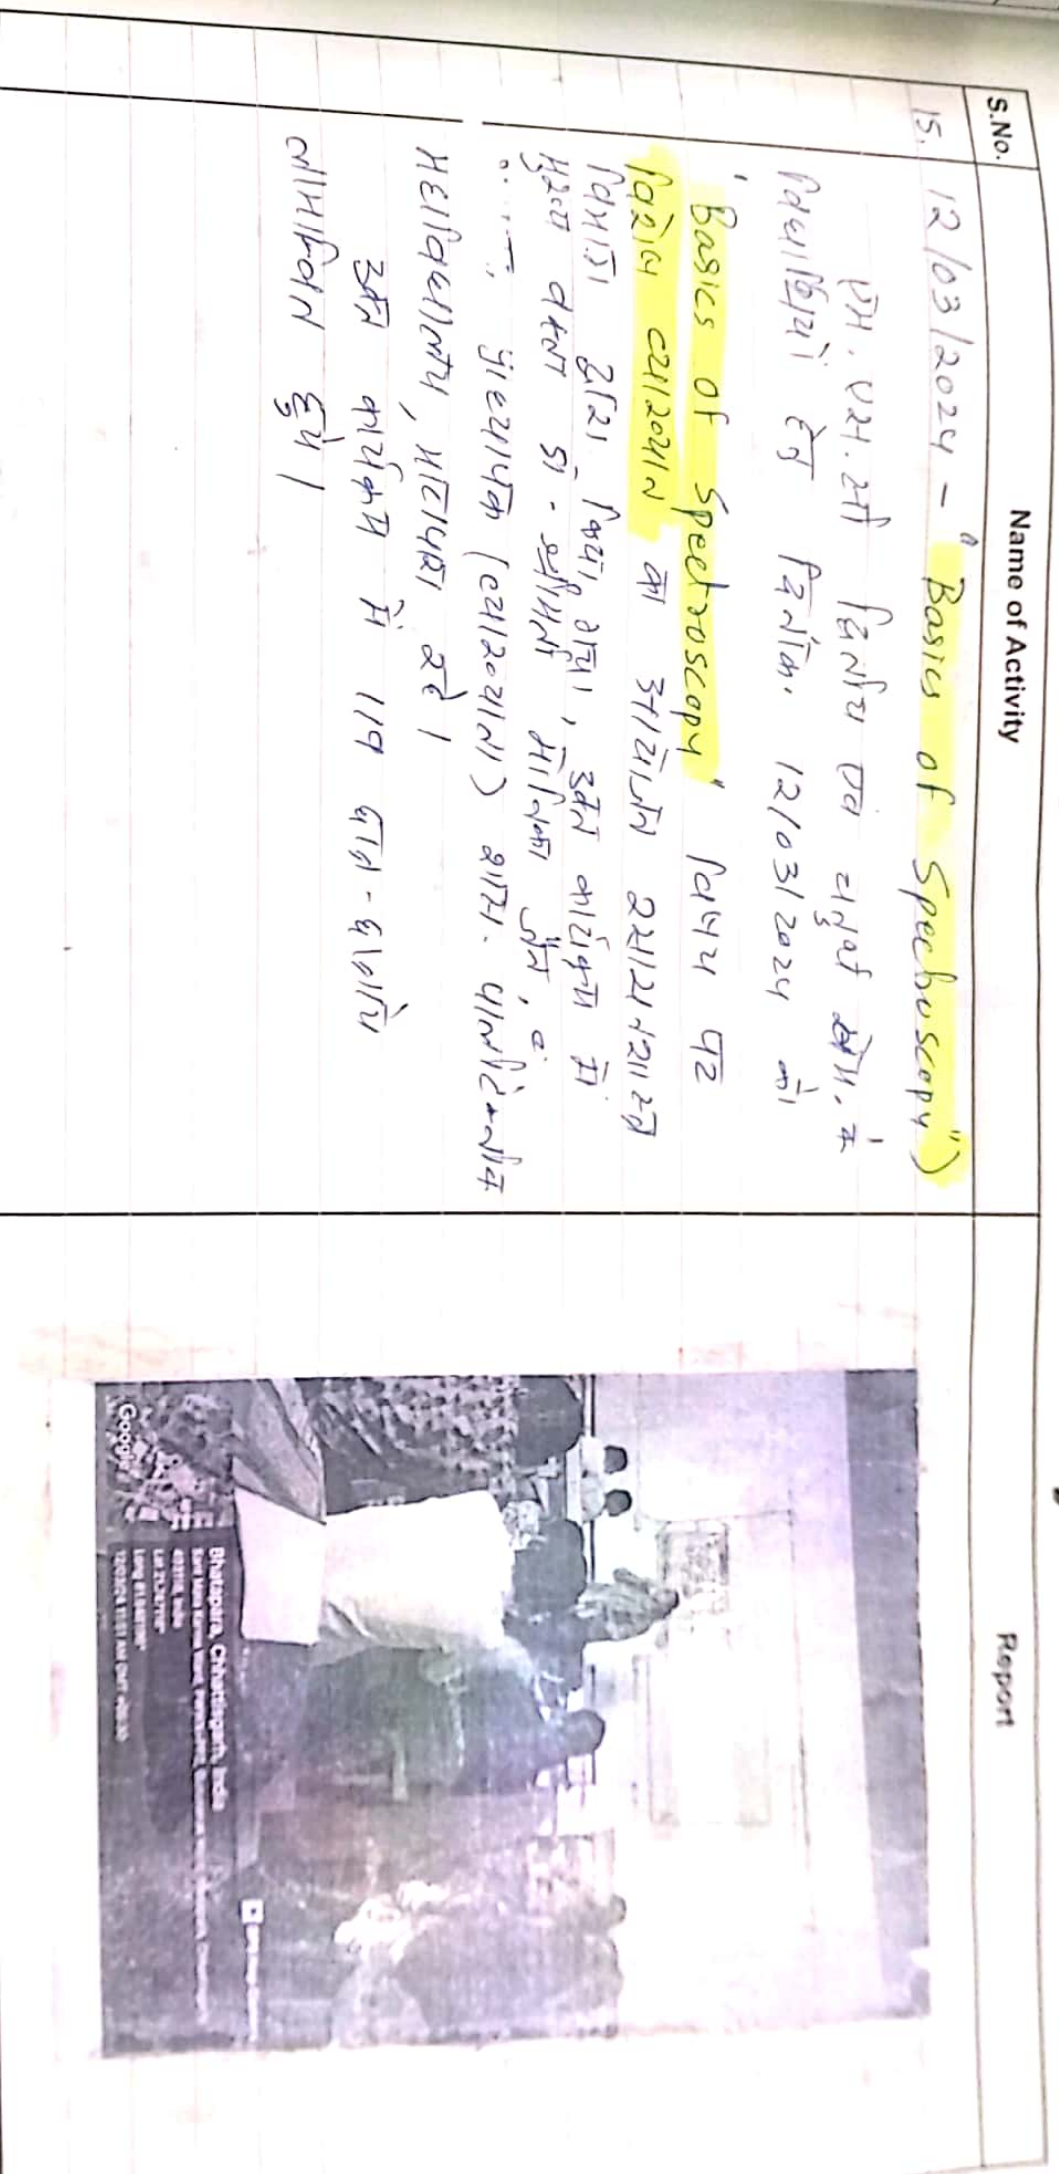 S.No.
Name of Activity
Report
15.
12/03/2024 - "Basics of Spectroscopy")
एम. एस. सी द्वितीय एवं चतुर्थ सेम. के
विद्यार्थियों हेतु दिनांक. 12/03/2024 को
'Basics of Spectroscopy" विषय पर
विशेष व्याख्यान का आयोजन रसायनशास्त्र
विभाग द्वारा किया गया, उक्त कार्यक्रम में
मुख्य वक्ता डॉ. श्रीमती जैन,
प्राध्यापक (रसायन) शास. पालीटेक्नीक
महाविद्यालय, भाटापारा रहे।
उक्त कार्यक्रम में छात्र-छात्रायें
लाभान्वित हुये।
Google
Bhatapara, Chhattisgarh, India
493118, India